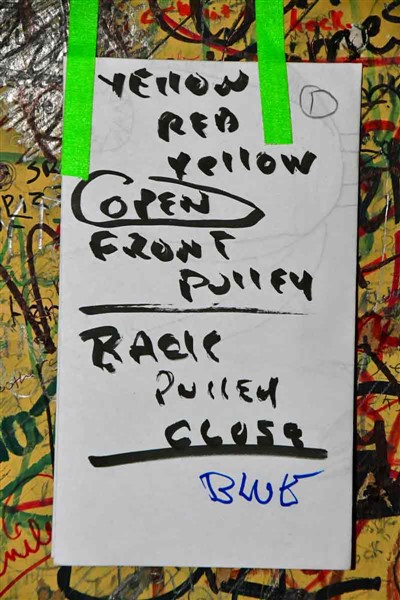 YELLOW
RED
YELLOW
OPEN
FRONT
PULLEY
BACK
PULLEY
CLOSE
BLUE